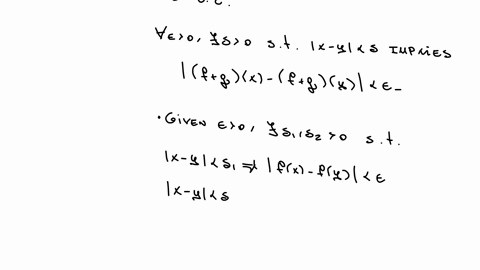 ∀ε>0, ∃δ>0 s.t. |x-y|<δ IMPLIES
|(f+g)(x)-(f+g)(y)|<ε-
• GIVEN ε>0, ∃δ₁,δ₂>0 s.t.
|x-y|<δ₁ ⇒ |f(x)-f(y)|<ε
|x-y|<δ